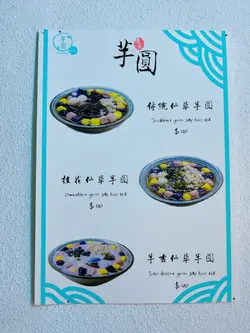 芋圓
芋圓
傳統仙草芋圓
Traditional grass jelly taro ball
桂花仙草芋圓
Osmanthus grass jelly taro ball
芋香仙草芋圓
Taro flavour grass jelly taro ball